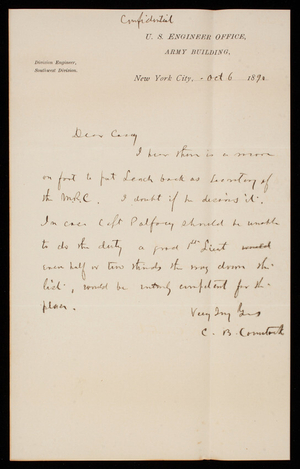 Confidential
U. S. ENGINEER OFFICE,
ARMY BUILDING,
Division Engineer,
Southwest Division.
New York City, Oct 6 1890.
Dear Casey
I hear there is a move
on foot to put Leach back as Secretary of
the M.R.C. I doubt if he desires it.
In case Capt Palfrey should be unable
to do the duty a good 1st Lieut
half or two thirds the way down the
list, would be entirely competent for the
place.
Very Truly Yours
C. B. Comstock